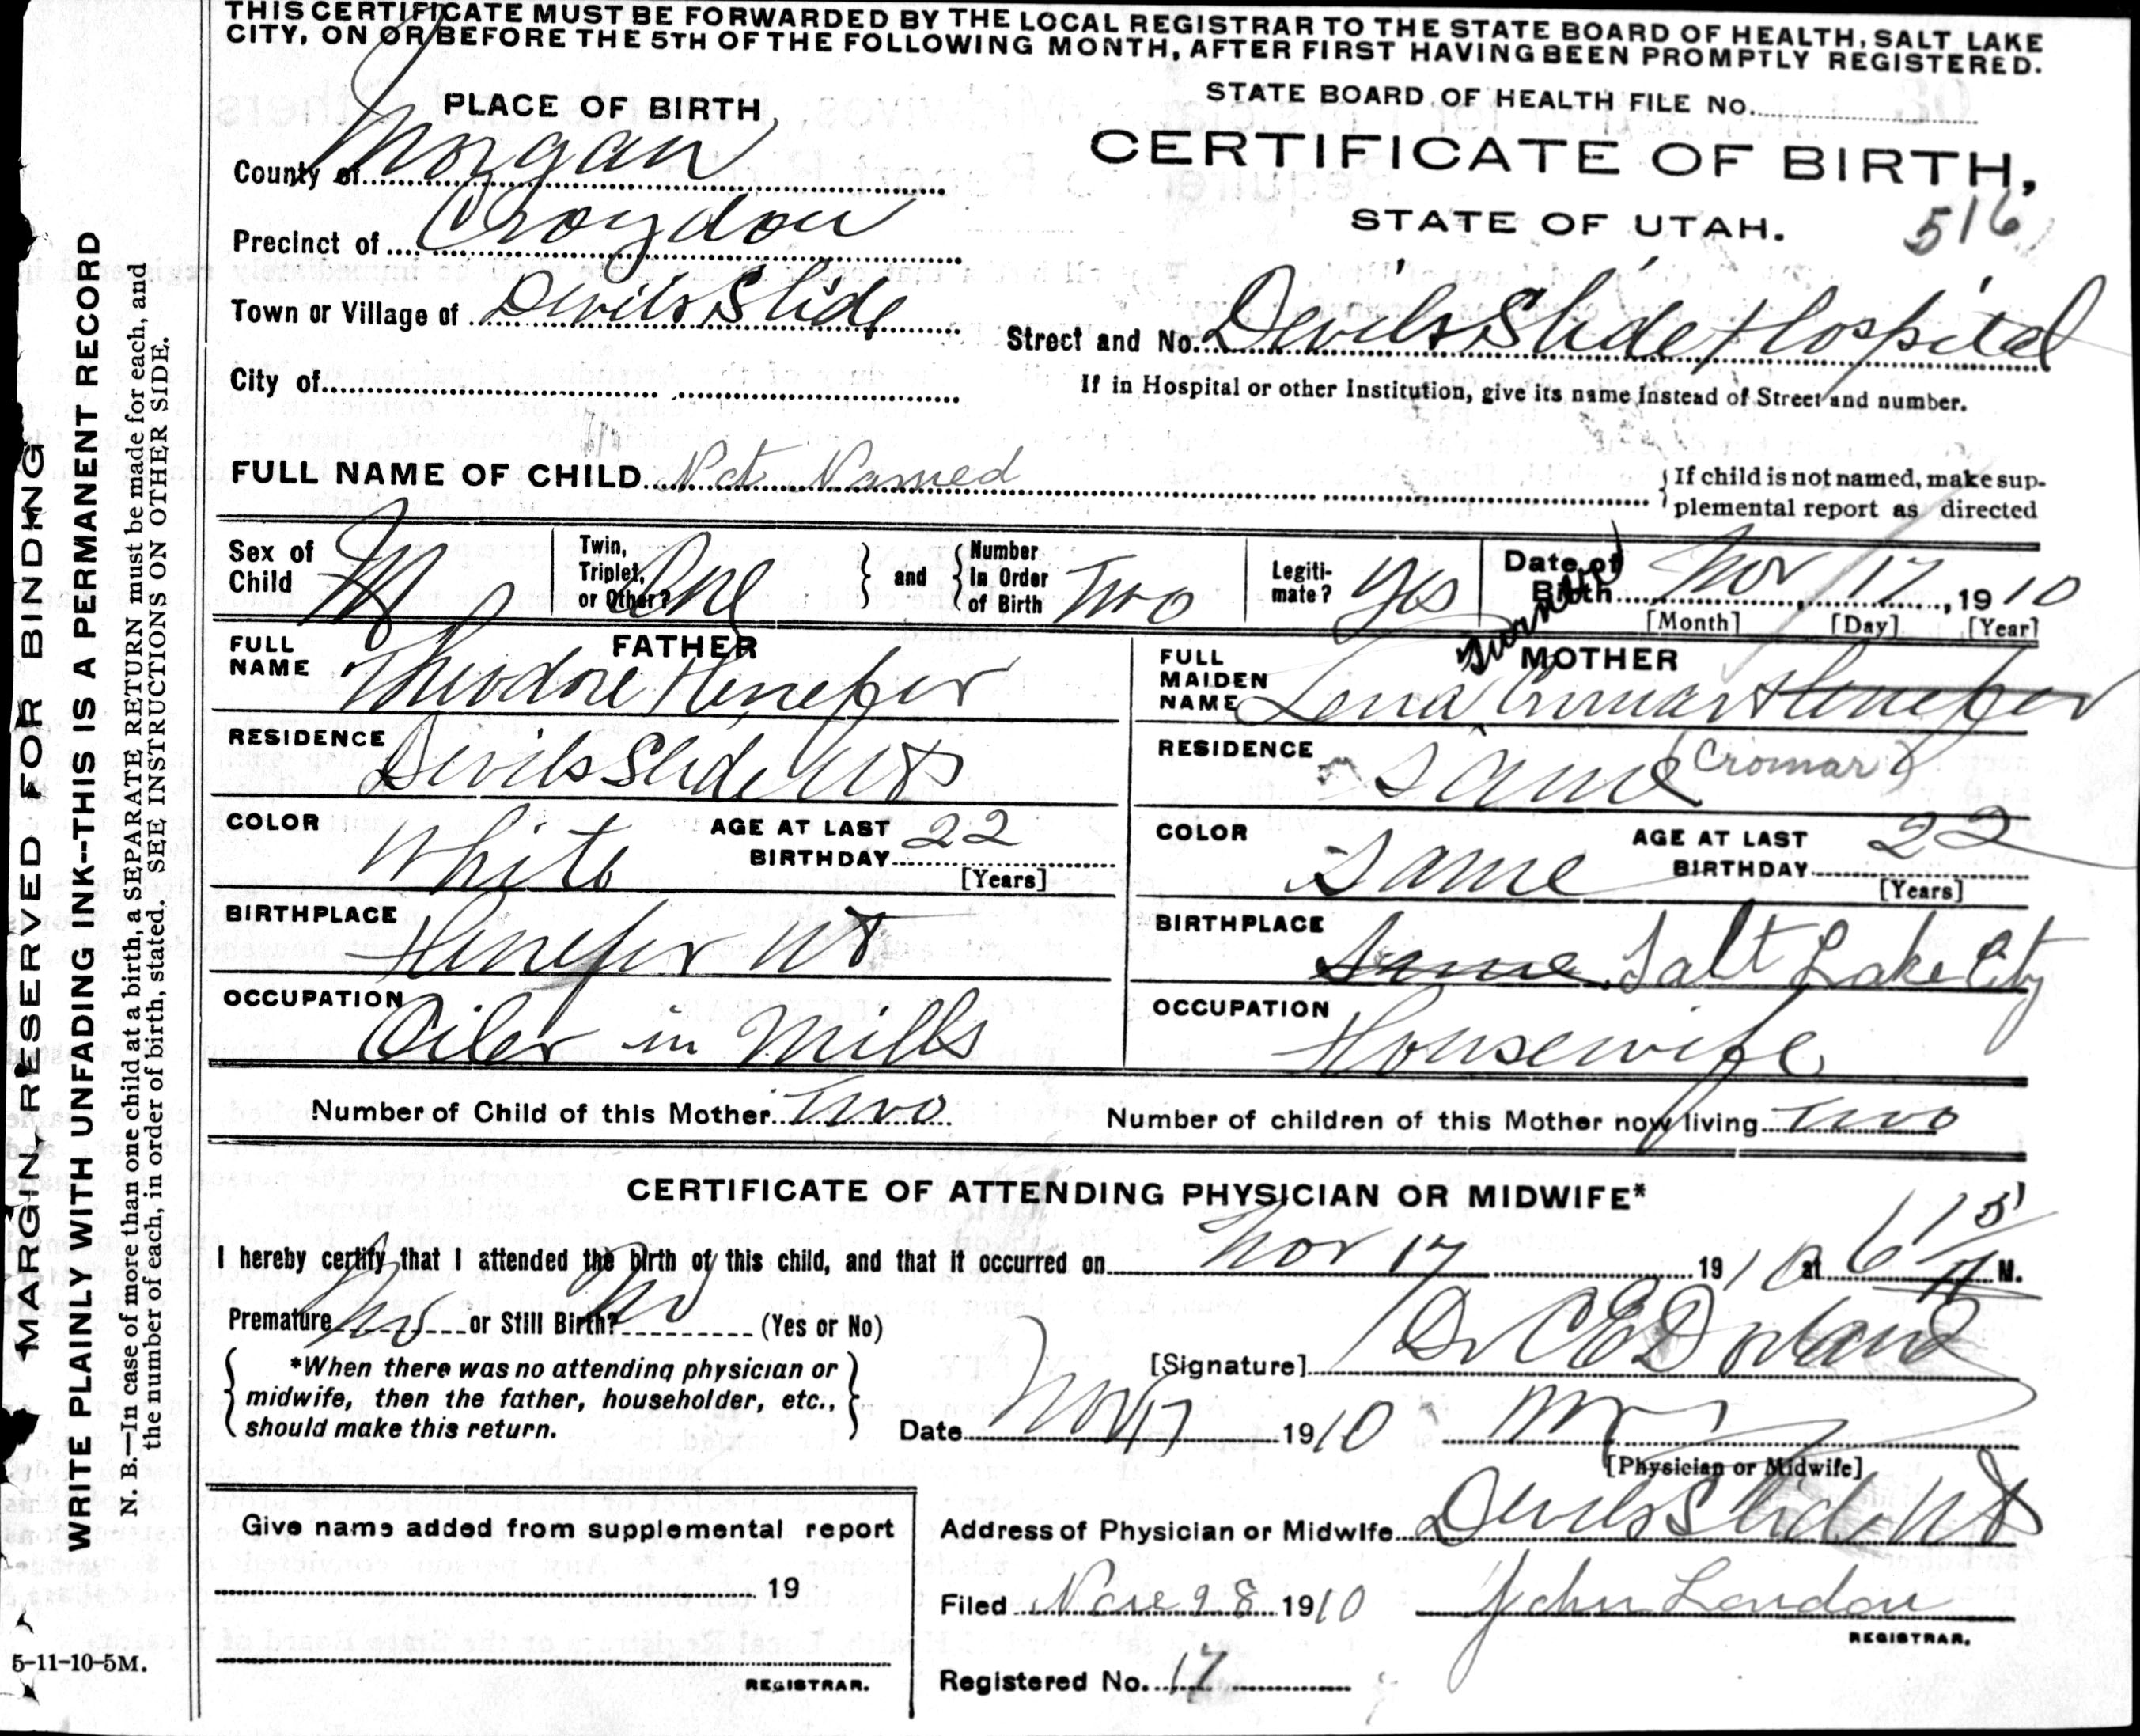 THIS CERTIFICATE MUST BE FORWARDED BY THE LOCAL REGISTRAR TO THE STATE BOARD OF HEALTH, SALT LAKE
CITY, ON OR BEFORE THE 5TH OF THE FOLLOWING MONTH, AFTER FIRST HAVING BEEN PROMPTLY REGISTERED.
STATE BOARD OF HEALTH FILE No.
PLACE OF BIRTH
CERTIFICATE OF BIRTH,
STATE OF UTAH.
516
County of Morgan
Precinct of Croydon
Town or Village of Devils Slide
Street and No. Devils Slide Hospital
City of
If in Hospital or other Institution, give its name instead of Street and number.
FULL NAME OF CHILD Not Named
If child is not named, make sup-
plemental report as directed
Sex of Child M
Twin, Triplet, or Other? One
and Number in Order of Birth Two
Legiti-mate? Yes
Date of Birth Nov 17, 1910
[Month] [Day] [Year]
FATHER
FULL NAME Theodore Henefer
RESIDENCE Devils Slide Ut
COLOR White
AGE AT LAST BIRTHDAY 22
[Years]
BIRTHPLACE Henefer Ut
OCCUPATION Oiler in Mills
MOTHER
FULL MAIDEN NAME Lena Cromar Henefer
RESIDENCE Same (Cromar)
COLOR Same
AGE AT LAST BIRTHDAY 22
[Years]
BIRTHPLACE Same Salt Lake City
OCCUPATION Housewife
Number of Child of this Mother Two
Number of children of this Mother now living Two
CERTIFICATE OF ATTENDING PHYSICIAN OR MIDWIFE*
I hereby certify that I attended the birth of this child, and that it occurred on Nov 17 1910 at 6 15 A M.
Premature No or Still Birth? No (Yes or No)
*When there was no attending physician or
midwife, then the father, householder, etc.,
should make this return.
[Signature] Dr C E
Date Nov 17 1910
[Physician or Midwife]
Give name added from supplemental report
19
REGISTRAR.
Address of Physician or Midwife Devils Slide Ut
Filed Nov 28 1910 John London
REGISTRAR.
Registered No. 17
MARGIN RESERVED FOR BINDING
WRITE PLAINLY WITH UNFADING INK--THIS IS A PERMANENT RECORD
N. B.—In case of more than one child at a birth, a SEPARATE RETURN must be made for each, and
the number of each, in order of birth, stated. SEE INSTRUCTIONS ON OTHER SIDE.
5-11-10-5M.